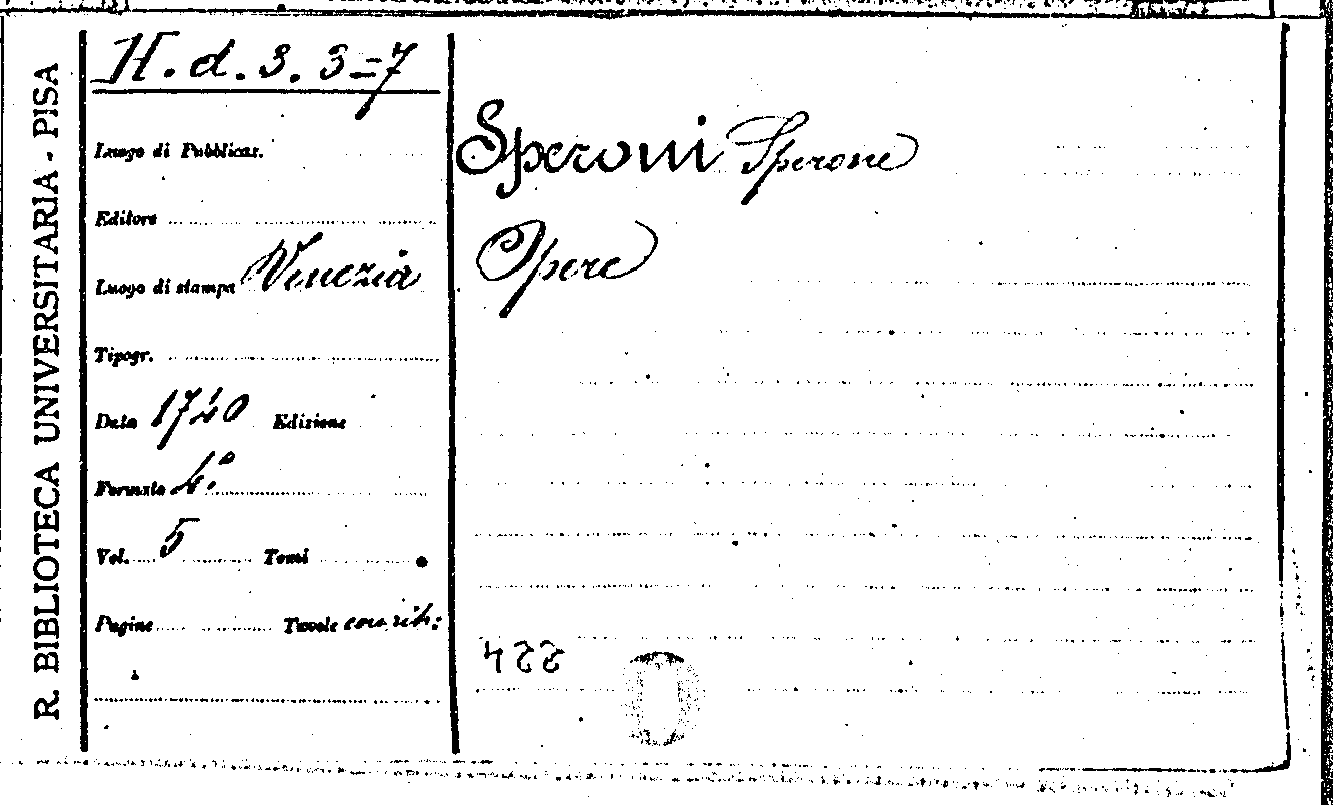 R. BIBLIOTECA UNIVERSITARIA - PISA
H. d. 3. 3=7
Luogo di Pubblicaz.
Editore
Luogo di stampa Venezia
Tipogr.
Data 1740 Edizione
Formato 4.°
Vol. 5 Tomi
Pagine Tavole con rit:
Speroni Sperone
Opere
422